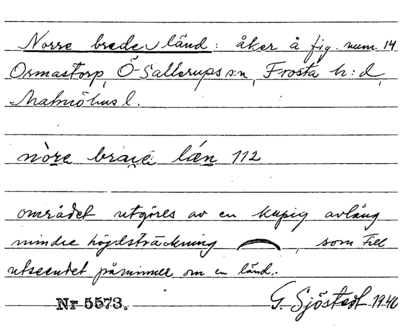 Norre brede länd: åker å fig. num. 14
Ormastorp, Ö-Sallerups s:n, Frosta h:d,
Malmöhus l.
nòre 112
området utgöres av en kupig avlång
mindre höjdsträckning , som till
utseendet påminner om en länd.
Nr 5573. G. Sjöstedt 1940